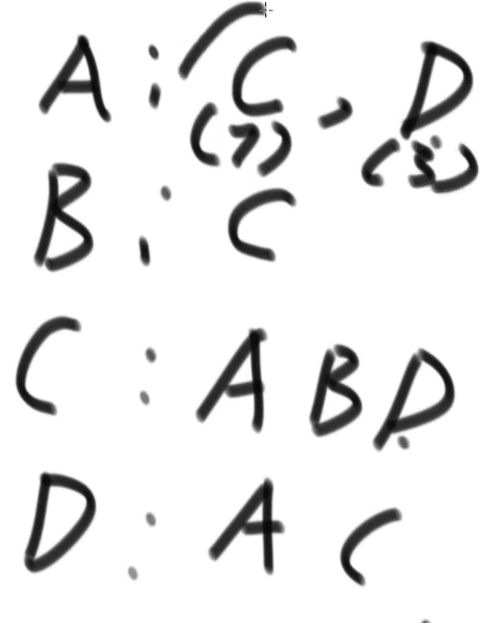 A : C , D
(7) (3)
B : C
C : A B D
D : A C